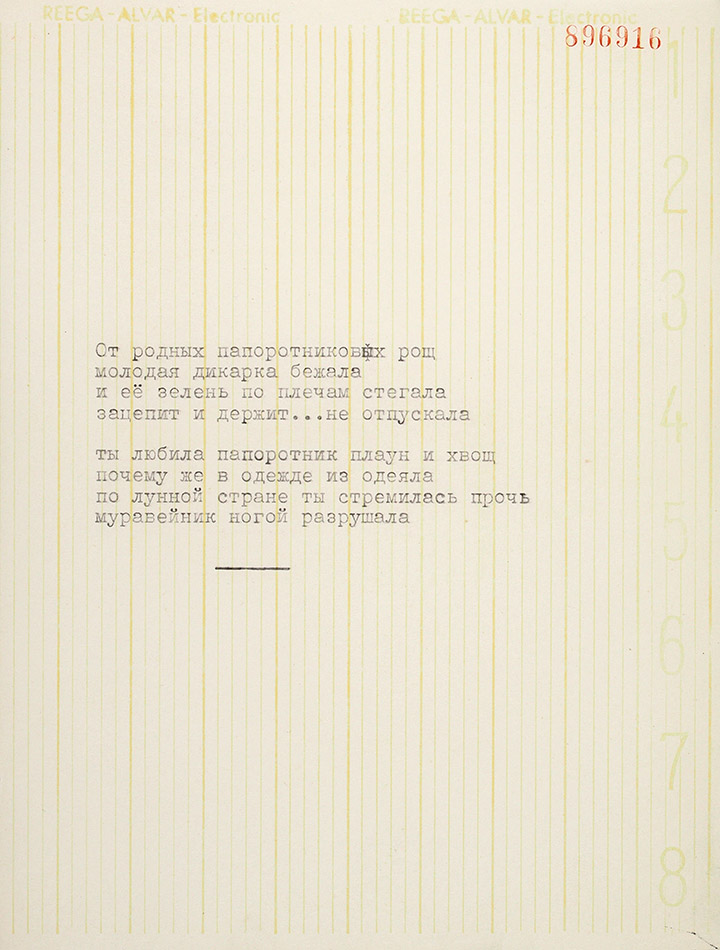 REEGA-ALVAR-Electronic REEGA-ALVAR-Electronic
896916
1
2
3
4
5
6
7
8
От родных папоротниковых рощ
молодая дикарка бежала
и её зелень по плечам стегала
зацепит и держит...не отпускала
ты любила папоротник плаун и хвощ
почему же в одежде из одеяла
по лунной стране ты стремилась прочь
муравейник ногой разрушала